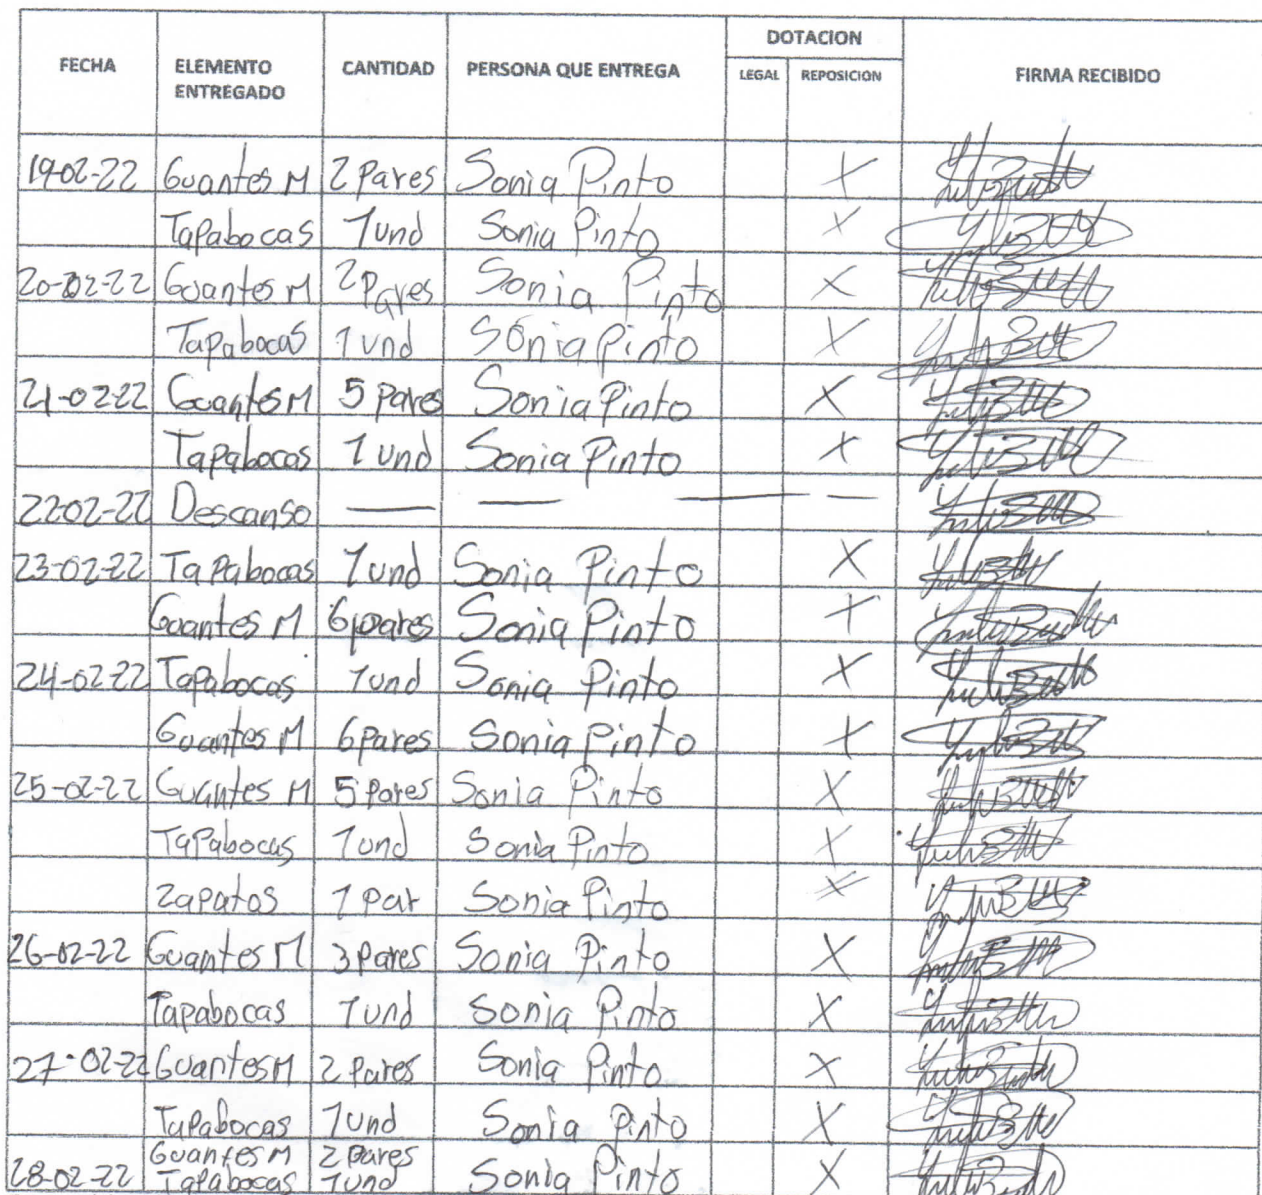 FECHA ELEMENTO ENTREGADO CANTIDAD PERSONA QUE ENTREGA DOTACION LEGAL REPOSICION FIRMA RECIBIDO
19-02-22 Guantes M 2 Pares Sonia Pinto X
Tapabocas 1 und Sonia Pinto X
20-02-22 Guantes M 2 Pares Sonia Pinto X
Tapabocas 1 und Sonia Pinto X
21-02-22 Guantes M 5 pares Sonia Pinto X
Tapabocas 1 und Sonia Pinto X
22-02-22 Descanso — — — —
23-02-22 Tapabocas 1 und Sonia Pinto X
Guantes M 6 pares Sonia Pinto X
24-02-22 Tapabocas 1 und Sonia Pinto X
Guantes M 6 pares Sonia Pinto X
25-02-22 Guantes M 5 Pares Sonia Pinto X
Tapabocas 1 und Sonia Pinto X
Zapatos 1 Par Sonia Pinto X
26-02-22 Guantes M 3 pares Sonia Pinto X
Tapabocas 1 und Sonia Pinto X
27-02-22 Guantes M 2 Pares Sonia Pinto X
Tapabocas 1 und Sonia Pinto X
Guantes M 2 pares
28-02-22 Tapabocas 1 und Sonia Pinto X